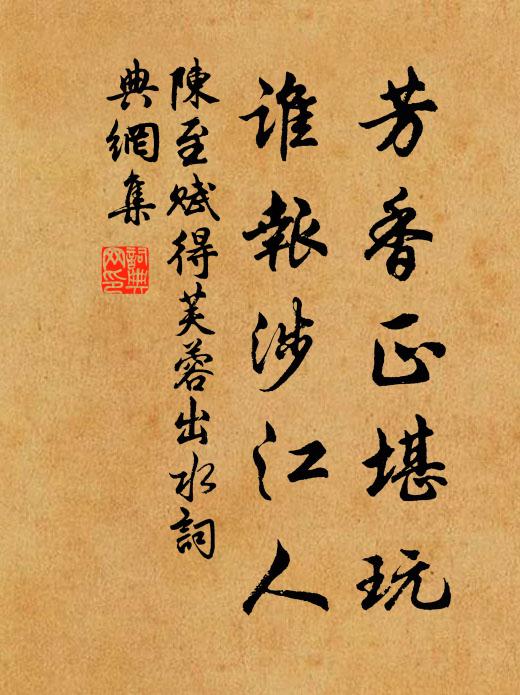 芳香正堪玩
誰報涉江人
陳至賦得芙蓉出水詞
典網集
詞典
网印